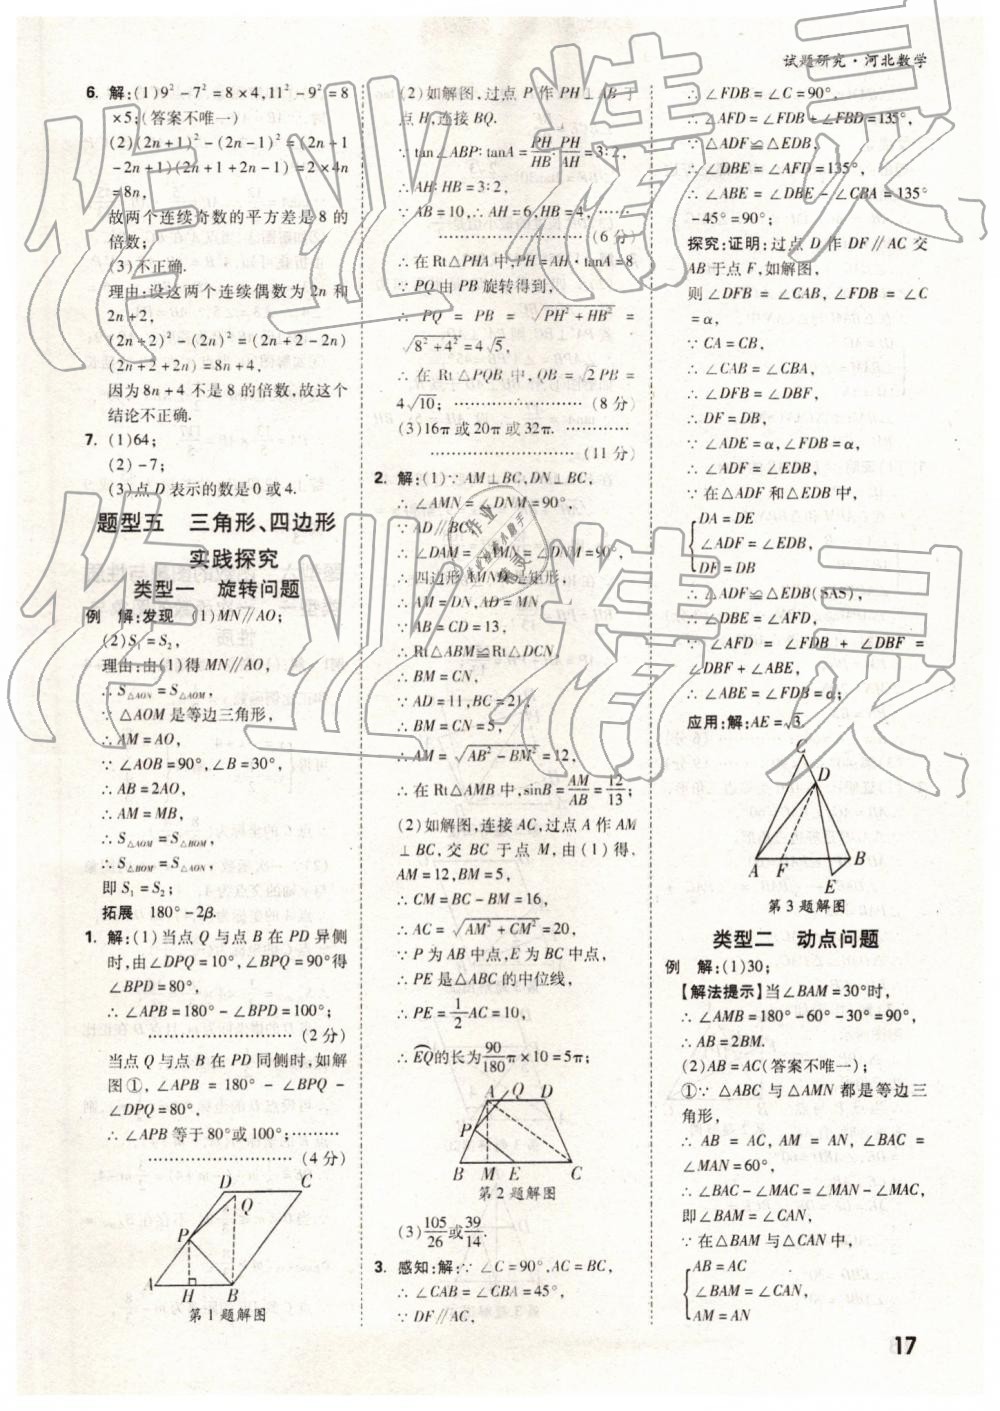 试题研究·河北数学
6. 解:(1)9²-7²=8×4,11²-9²=8
×5;(答案不唯一)
(2)(2n+1)²-(2n-1)²=(2n+1
-2n+1)(2n+1+2n-1)=2×4n
=8n,
故两个连续奇数的平方差是8的
倍数;
(3)不正确.
理由:设这两个连续偶数为2n和
2n+2,
(2n+2)²-(2n)²=(2n+2-2n)
(2n+2+2n)=8n+4,
因为8n+4不是8的倍数,故这个
结论不正确.
7. (1)64;
(2)-7;
(3)点D表示的数是0或4.
题型五 三角形、四边形
实践探究
类型一 旋转问题
例 解:发现 (1)MN∥AO;
(2)S₁=S₂,
理由:由(1)得MN∥AO,
∴S△AON=S△AOM,
∵△AOM是等边三角形,
∴AM=AO,
∵∠AOB=90°,∠B=30°,
∴AB=2AO,
∴AM=MB,
∴S△AOM=S△BOM,
∴S△BOM=S△AON,
即S₁=S₂;
拓展 180°-2β.
1. 解:(1)当点Q与点B在PD异侧
时,由∠DPQ=10°,∠BPQ=90°得
∠BPD=80°,
∴∠APB=180°-∠BPD=100°;
…………………………(2分)
当点Q与点B在PD同侧时,如解
图①,∠APB=180°-∠BPQ-
∠DPQ=80°,
∴∠APB等于80°或100°;………
…………………………(4分)
D C
Q
P
A H B
第1题解图
(2)如解图,过点P作PH⊥AB于
点H,连接BQ.
∵tan∠ABP:tanA=PH/HB:PH/AH=3:2,
∴AH:HB=3:2,
∵AB=10,∴AH=6,HB=4,……
…………………………(6分)
∴在Rt△PHA中,PH=AH·tanA=8
∵PQ由PB旋转得到,
∴PQ=PB=√(PH²+HB²)=
√(8²+4²)=4√5,
∴在Rt△PQB中,QB=√2PB=
4√10;…………………(8分)
(3)16π或20π或32π.…………
…………………………(11分)
2. 解:(1)∵AM⊥BC,DN⊥BC,
∴∠AMN=∠DNM=90°,
∵AD∥BC,
∴∠DAM=∠AMN=∠DNM=90°,
∴四边形AMND是矩形,
∴AM=DN,AD=MN,
∵AB=CD=13,
∴Rt△ABM≌Rt△DCN,
∴BM=CN,
∵AD=11,BC=21,
∴BM=CN=5,
∴AM=√(AB²-BM²)=12,
∴在Rt△AMB中,sinB=AM/AB=12/13;
(2)如解图,连接AC,过点A作AM
⊥BC,交BC于点M,由(1)得,
AM=12,BM=5,
∴CM=BC-BM=16,
∴AC=√(AM²+CM²)=20,
∵P为AB中点,E为BC中点,
∴PE是△ABC的中位线,
∴PE=1/2AC=10,
∴EQ的长为90/180π×10=5π;
A Q D
P
B M E C
第2题解图
(3)105/26或39/14.
3. 感知:解:∵∠C=90°,AC=BC,
∴∠CAB=∠CBA=45°,
∵DF∥AC,
∴∠FDB=∠C=90°,
∴∠AFD=∠FDB+∠FBD=135°,
∵△ADF≌△EDB,
∴∠DBE=∠AFD=135°,
∴∠ABE=∠DBE-∠CBA=135°
-45°=90°;
探究:证明:过点D作DF∥AC交
AB于点F,如解图,
则∠DFB=∠CAB,∠FDB=∠C
=α,
∵CA=CB,
∴∠CAB=∠CBA,
∴∠DFB=∠DBF,
∴DF=DB,
∵∠ADE=α,∠FDB=α,
∴∠ADF=∠EDB,
∵在△ADF和△EDB中,
DA=DE
∠ADF=∠EDB,
DF=DB
∴△ADF≌△EDB(SAS),
∴∠DBE=∠AFD,
∵∠AFD=∠FDB+∠DBF=
∠DBF+∠ABE,
∴∠ABE=∠FDB=α;
应用:解:AE=√3.
C
D
A F B
E
第3题解图
类型二 动点问题
例 解:(1)30;
【解法提示】当∠BAM=30°时,
∴∠AMB=180°-60°-30°=90°,
∴AB=2BM.
(2)AB=AC(答案不唯一);
①∵△ABC与△AMN都是等边三
角形,
∴AB=AC,AM=AN,∠BAC=
∠MAN=60°,
∴∠BAC-∠MAC=∠MAN-∠MAC,
即∠BAM=∠CAN,
∵在△BAM与△CAN中,
AB=AC
∠BAM=∠CAN,
AM=AN
17
作业精灵
作业精灵